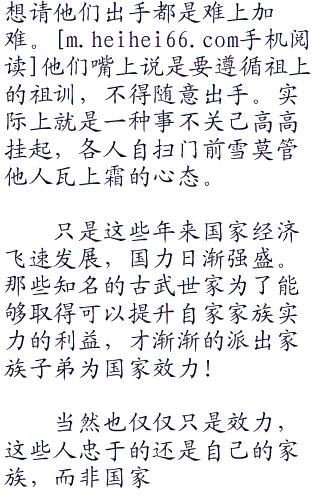 想请他们出手都是难上加
难。[m.heihei66.com手机阅
读]他们嘴上说是要遵循祖上
的祖训，不得随意出手。实
际上就是一种事不关己高高
挂起，各人自扫门前雪莫管
他人瓦上霜的心态。
只是这些年来国家经济
飞速发展，国力日渐强盛。
那些知名的古武世家为了能
够取得可以提升自家家族实
力的利益，才渐渐的派出家
族子弟为国家效力！
当然也仅仅只是效力，
这些人忠于的还是自己的家
族，而非国家